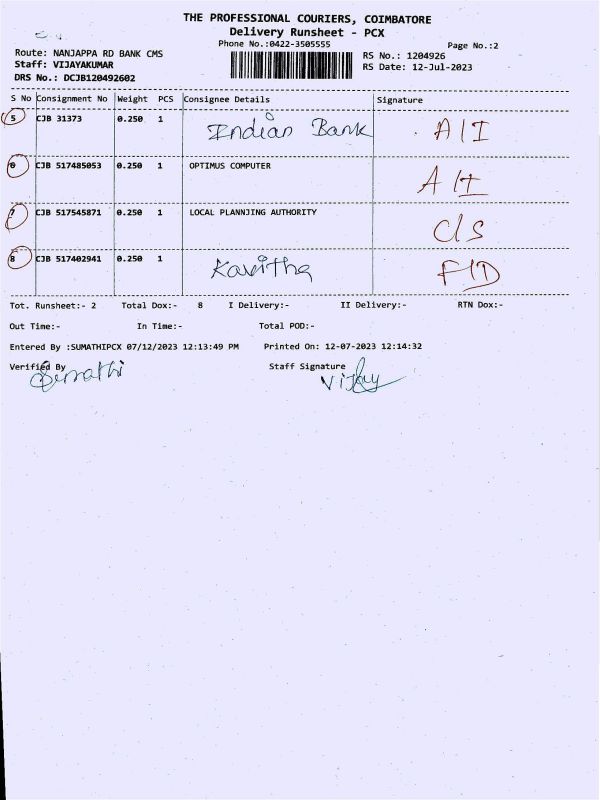 THE PROFESSIONAL COURIERS, COIMBATORE
Delivery Runsheet - PCX
Phone No.:0422-3505555
Page No.:2
Route: NANJAPPA RD BANK CMS
RS No.: 1204926
Staff: VIJAYAKUMAR
RS Date: 12-Jul-2023
DRS No.: DCJB120492602
S No Consignment No Weight PCS Consignee Details Signature
5 CJB 31373 0.250 1 Indian Bank A/I
6 CJB 517485053 0.250 1 OPTIMUS COMPUTER A/I
7 CJB 517545871 0.250 1 LOCAL PLANNJING AUTHORITY C/S
8 CJB 517402941 0.250 1 Kavitha F/D
Tot. Runsheet:- 2 Total Dox:- 8 I Delivery:- II Delivery:- RTN Dox:-
Out Time:- In Time:- Total POD:-
Entered By :SUMATHIPCX 07/12/2023 12:13:49 PM Printed On: 12-07-2023 12:14:32
Verified By Staff Signature
Sumathi Vijay